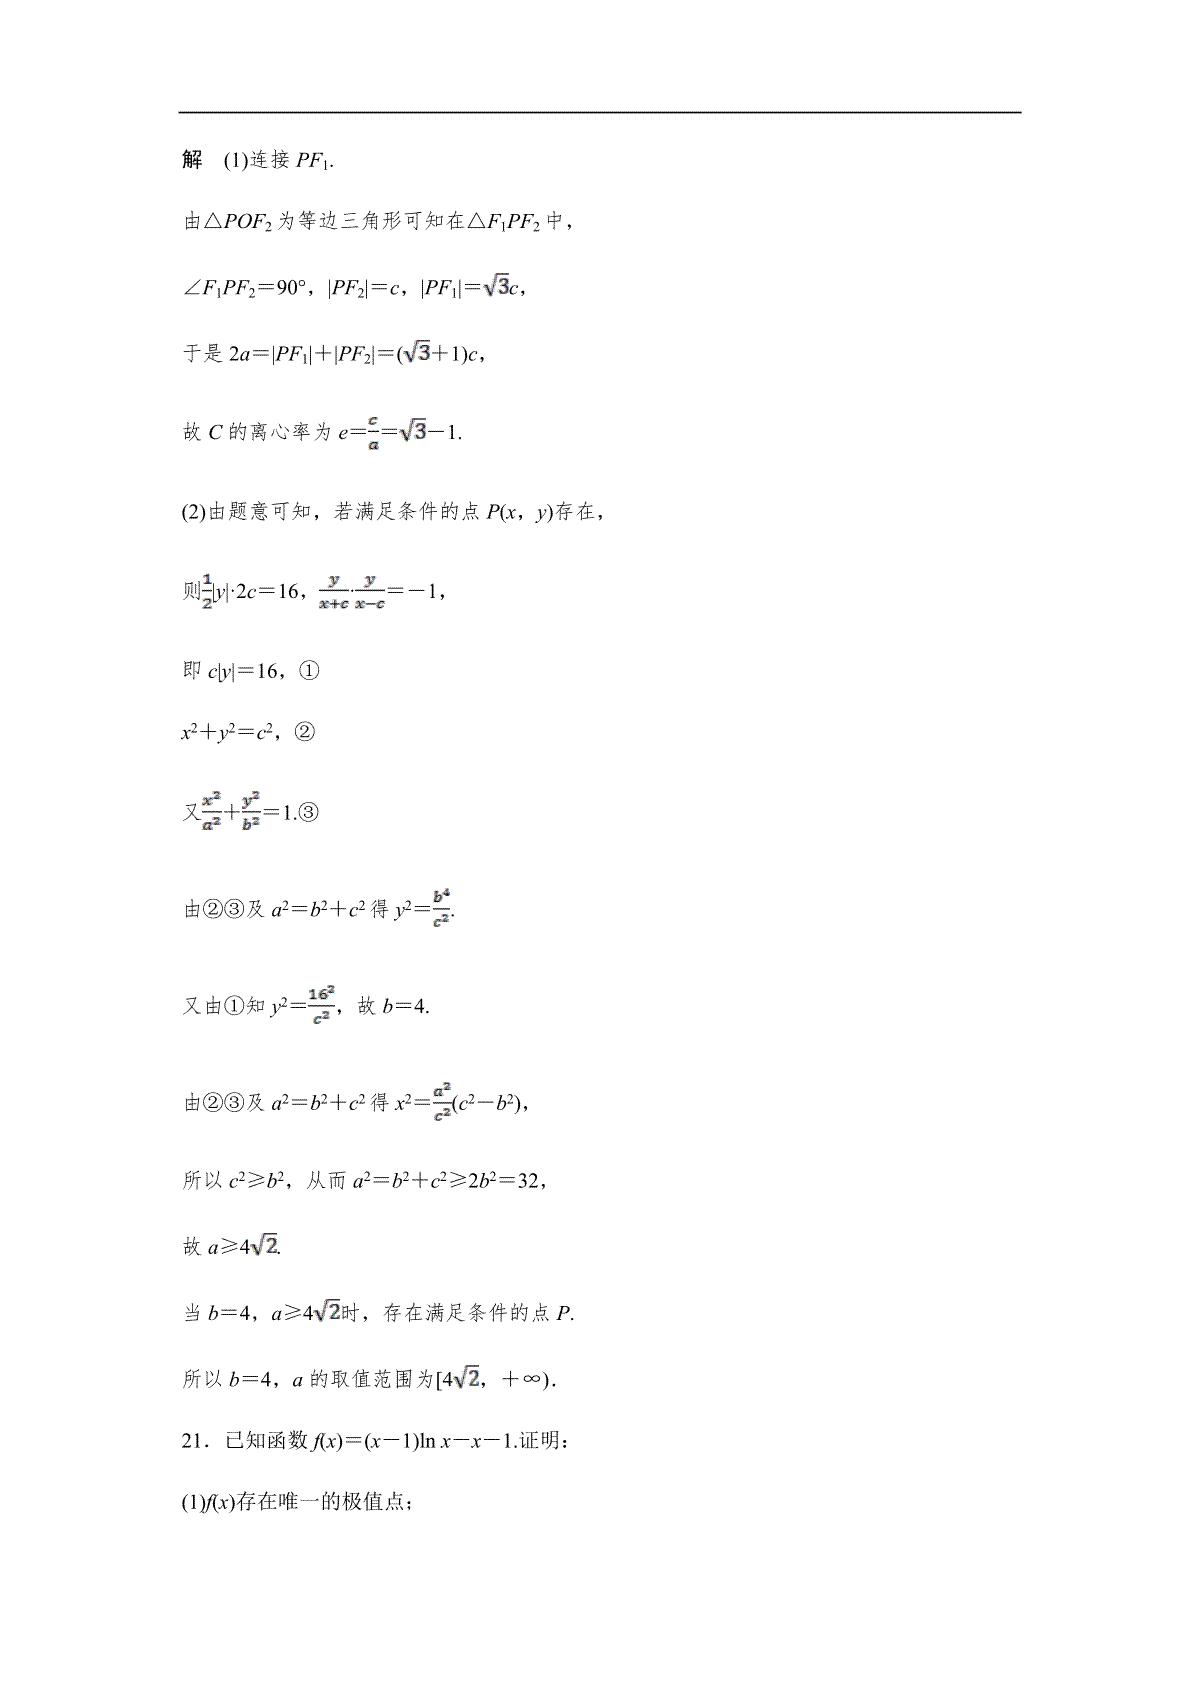 解　(1)连接 PF₁.
由△POF₂为等边三角形可知在△F₁PF₂中，
∠F₁PF₂＝90°，|PF₂|＝c，|PF₁|＝√3c，
于是 2a＝|PF₁|＋|PF₂|＝(√3＋1)c，
故 C 的离心率为 e＝c/a＝√3－1.
(2)由题意可知，若满足条件的点 P(x，y)存在，
则1/2|y|·2c＝16，y/(x+c)·y/(x−c)＝－1，
即 c|y|＝16，①
x²＋y²＝c²，②
又x²/a²＋y²/b²＝1.③
由②③及 a²＝b²＋c²得 y²＝b⁴/c².
又由①知 y²＝16²/c²，故 b＝4.
由②③及 a²＝b²＋c²得 x²＝a²/c²(c²－b²)，
所以 c²≥b²，从而 a²＝b²＋c²≥2b²＝32，
故 a≥4√2.
当 b＝4，a≥4√2时，存在满足条件的点 P.
所以 b＝4，a 的取值范围为[4√2，＋∞).
21．已知函数 f(x)＝(x－1)ln x－x－1.证明：
(1)f(x)存在唯一的极值点；